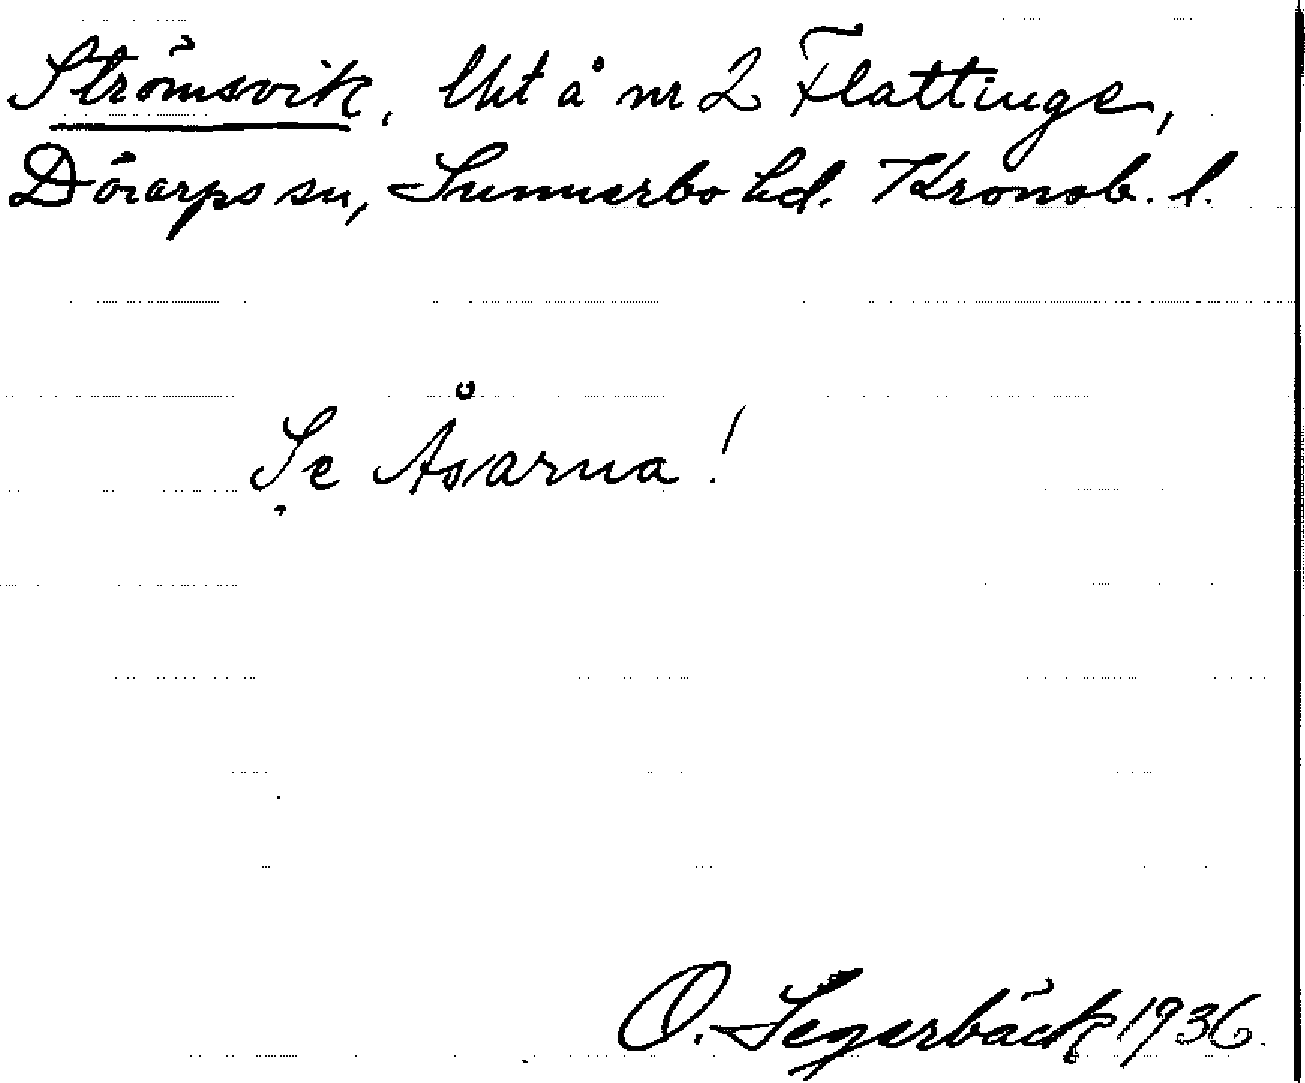 Strömsvik, lht å nr 2 Flattinge,
Dörarps sn, Sunnerbo hd. Kronob. l.
Se Åsarna!
O. Segerbäck 1936.